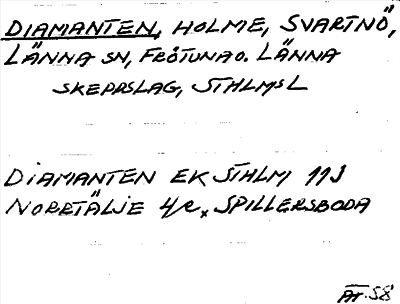 DIAMANTEN, HOLME, SVARTNÖ,
LÄNNA SN, FRÖTUNA O. LÄNNA
SKEPPSLAG, STHLMS L
DIAMANTEN EK STHLM 11J
NORRTÄLJE 4/e, SPILLERSBODA
ÄT. S8